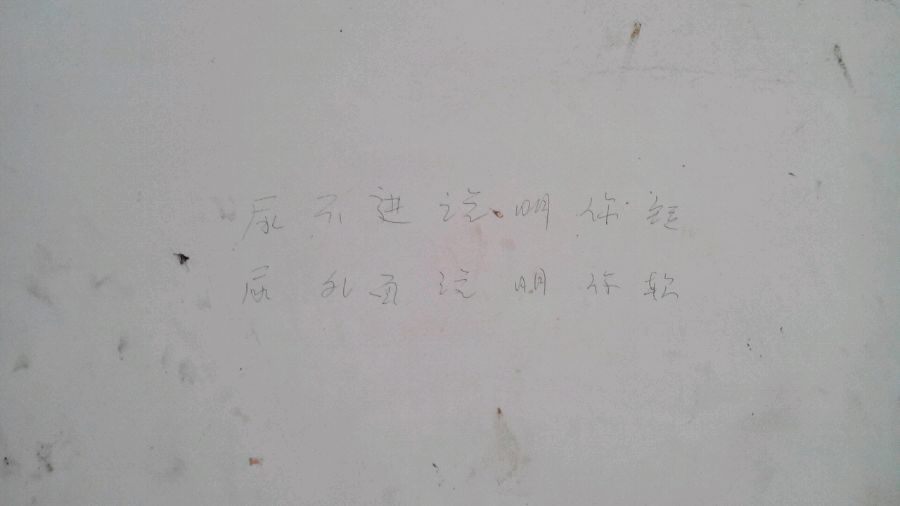 尿不进说明你短
尿外面说明你软